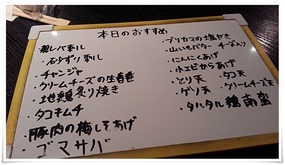 本日のおすすめ
・鶏レバ刺し
・石ずり刺し
・チャンジャ
・クリームチーズの生春巻
・地鶏炙り焼き
・タコキムチ
・豚肉の梅しそあげ
・ゴマサバ
・ブリカマの塩やき
・山いもバター チーズ入り
・にんにくあげ
・小エビからあげ
・とり天 ・タコ天
・ゲソ天 ・クリームチーズ天
・タルタル鶏南蛮